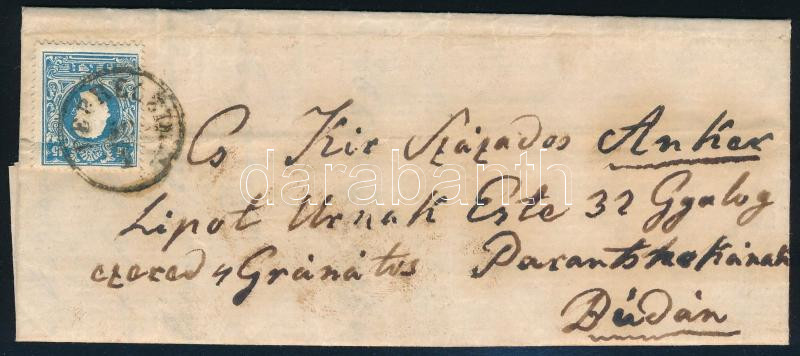 Cs Kir Százados Anker
Lipot Urnak Este 32 Gyalog
ezered 4 Gránátos Parantsnokának
Búdán
darabanth